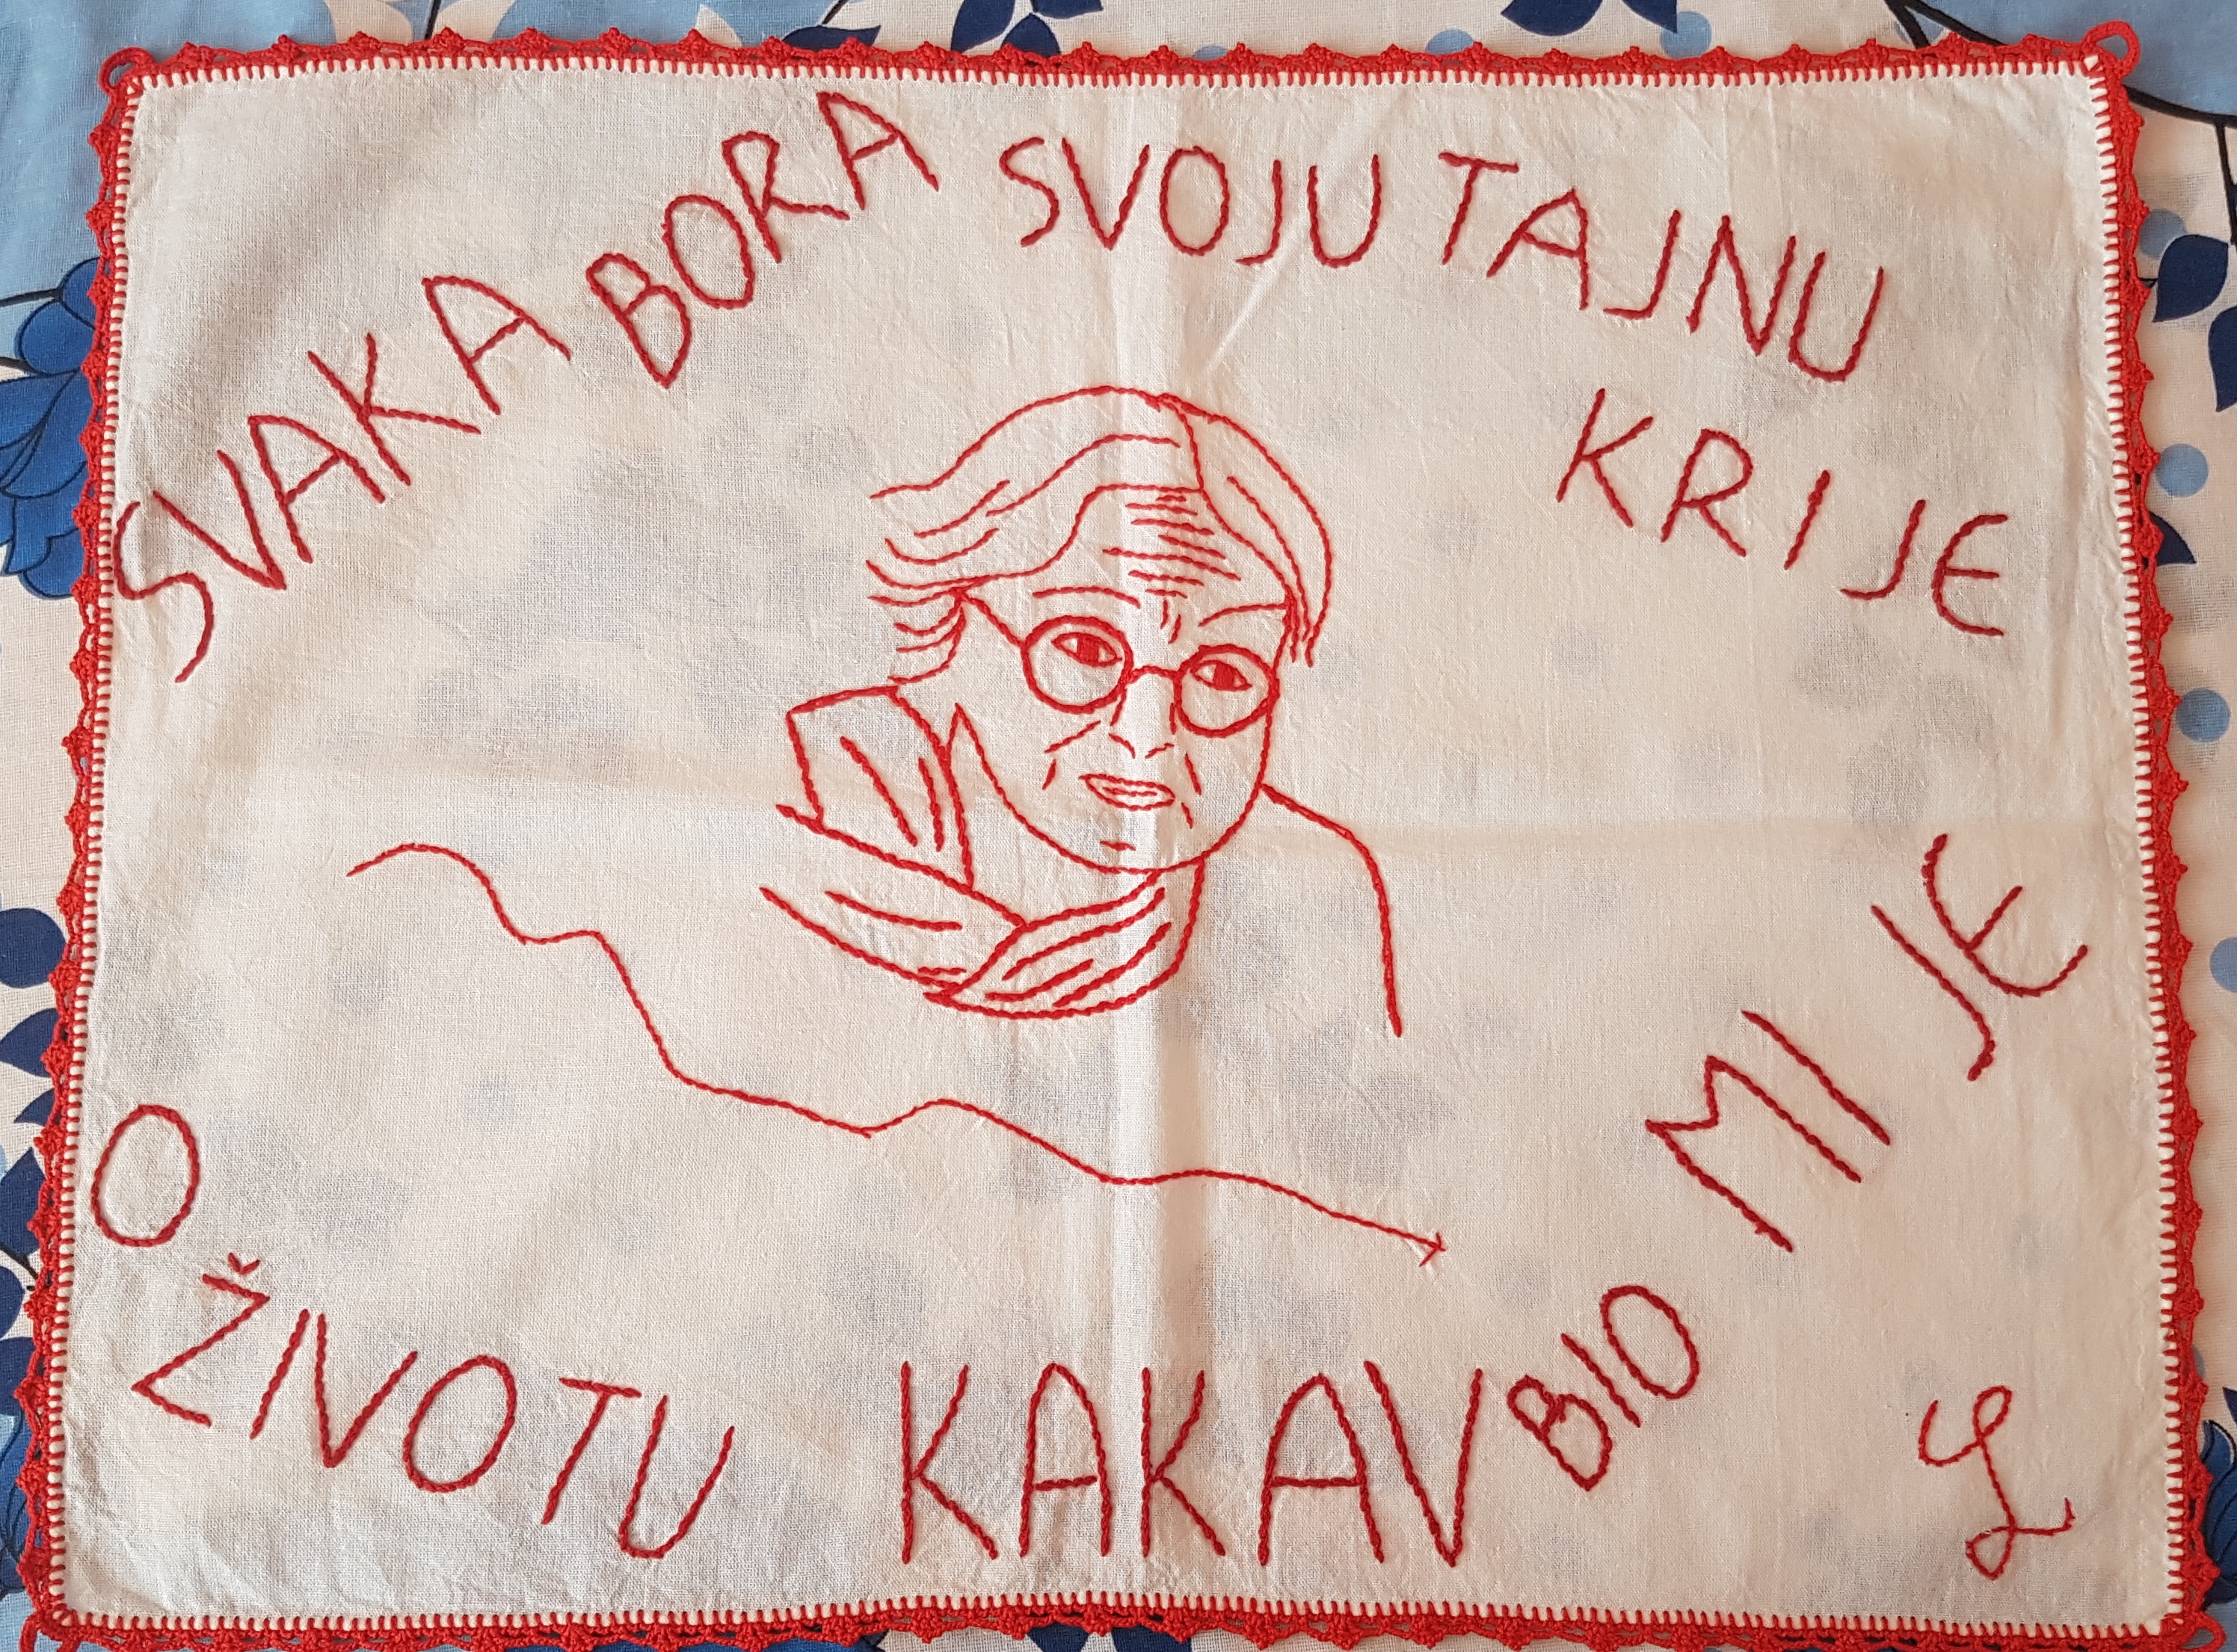 SVAKA BORA SVOJU TAJNU KRIJE
O ŽIVOTU KAKAV BIO MI JE
L